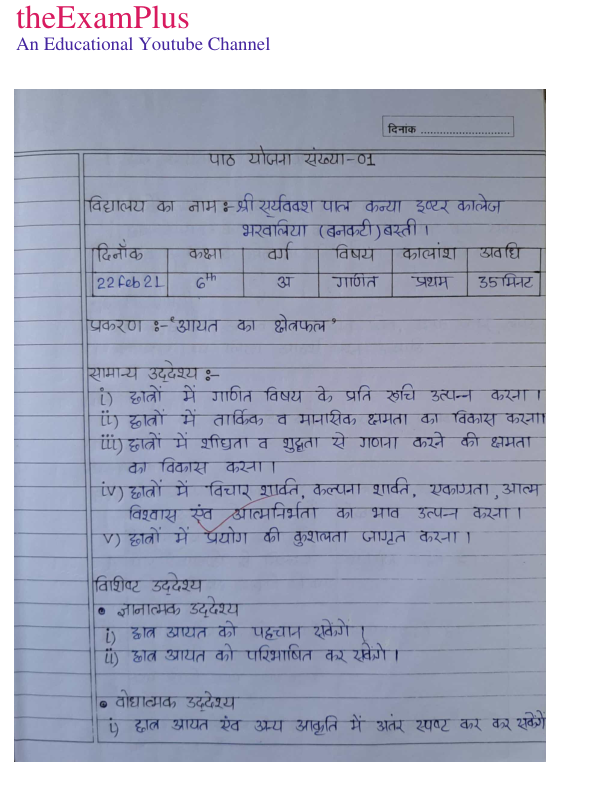 theExamPlus
An Educational Youtube Channel
दिनाँक
पाठ योजना संख्या-01
विद्यालय का नाम :- श्री सूर्यवंश पाल कन्या इण्टर कालेज
भरवालिया (बनकटी) बस्ती ।
दिनाँक कक्षा वर्ग विषय कालांश अवधि
22 feb 21 6th अ गाणित प्रथम 35 मिनट
प्रकरण :- "आयत का क्षेत्रफल"
सामान्य उद्देश्य :-
i) छात्रों में गाणित विषय के प्रति रूचि उत्पन्न करना ।
ii) छात्रों में तार्किक व मानसिक क्षमता का विकास करना।
iii) छात्रों में शीघ्रता व शुद्धता से गणना करने की क्षमता
का विकास करना ।
iv) छात्रों में विचार शाक्ति, कल्पना शाक्ति, एकाग्रता, आत्म
विश्वास एंव आत्मनिर्भता का भाव उत्पन्न करना ।
v) छात्रों में प्रयोग की कुशलता जागृत करना ।
विशिष्ट उद्देश्य
• ज्ञानात्मक उद्देश्य
i) छात्र आयत को पहचान सकेंगे ।
ii) छात्र आयत को परिभाषित कर सकेंगे ।
• वोधात्मक उद्देश्य
i) छात्र आयत एंव अन्य आकृति में अंतर स्पष्ट कर कर सकेंगे